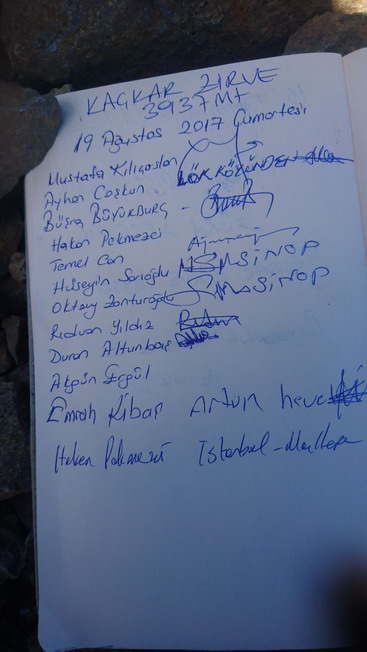 KAÇKAR ZİRVE
3937 MT
19 Ağustos 2017 Cumartesi
Mustafa Kılıçaslan
Ayhan Coşkun GÖKKÖYÜNDEN
Büşra BÜYÜKBURÇ -
Hakan Pekmezci
Temel Can
Hüseyin Sarıoğlu SİNOP
Oktay SİNOP
Rıdvan Yıldız
Duran Altunbaş
Akgün
Emrah Kibar Artvin
Hakan Pekmezci İstanbul - Maltepe